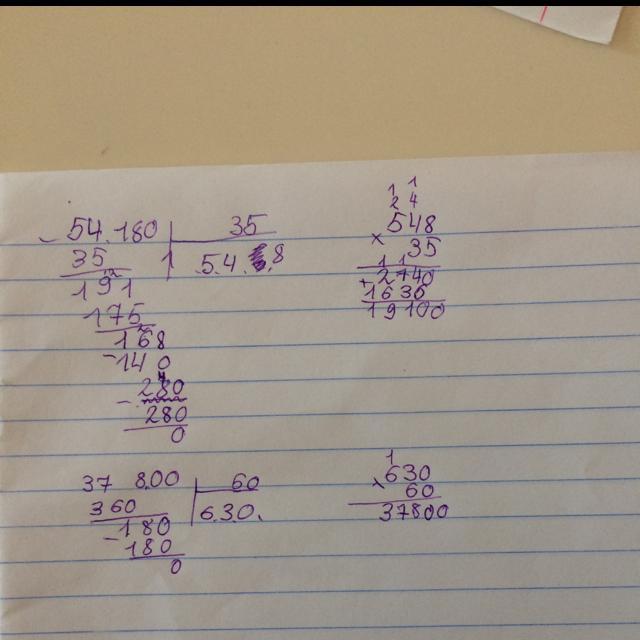 54.180 35
35 1.5.4.8
191
175
168
-140
280
- 280
0
1 1
2 4
548
x 35
1 1
2740
+1630
19100
37 8.00 60
360 6.3.0.
-180
180
0
1
630
x 60
37800